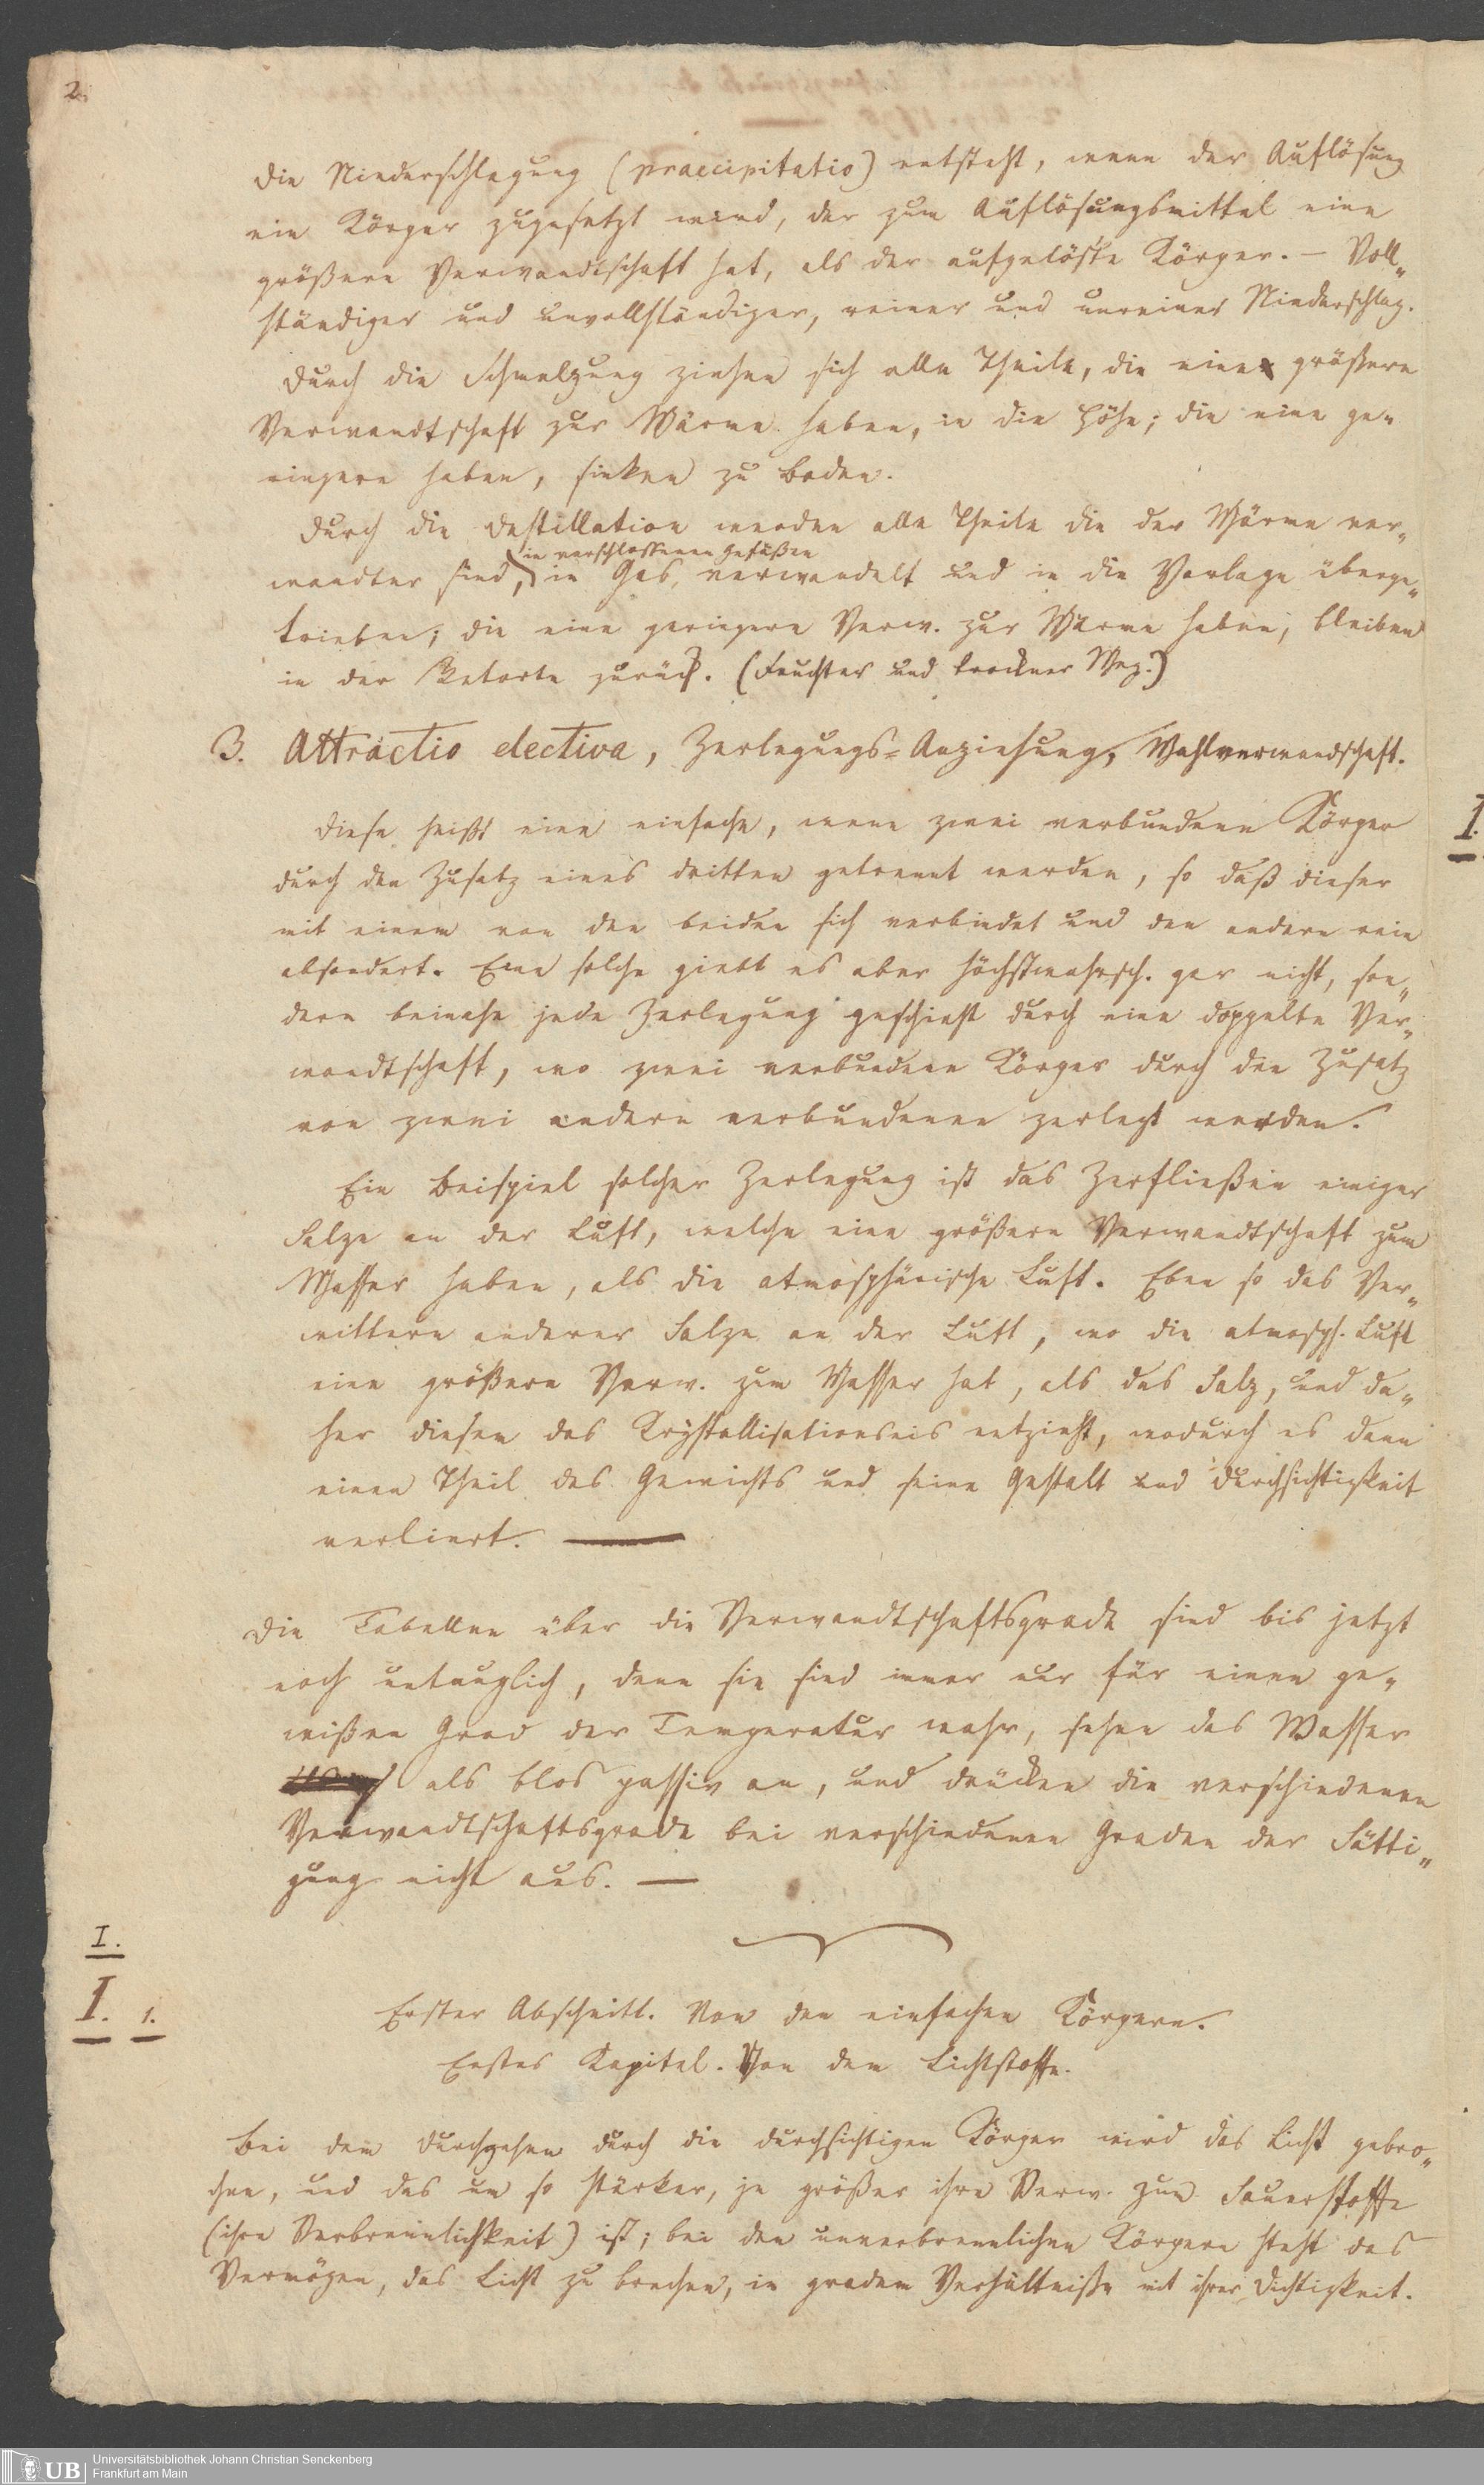 2.
Die Niederschlagung (praecipitatio) entsteht, wenn der Auflösung
ein Körper zugesetzt wird, der zum Auflösungsmittel eine
größere Verwandtschaft hat, als der aufgelöste Körper. – Voll„
ständiger und unvollständiger, reiner und unreiner Niederschlag.
Durch die Schmelzung ziehen sich alle Theile, die eine größere
Verwandtschaft zur Wärme haben, in die Höhe; die eine ge„
ringere haben, sinken zu Boden.
Durch die Destillation werden alle Theile die der Wärme ver„
in verschlossenen Gefäßen
wandter sind, in Gas verwandelt und in die Vorlage überge„
trieben; die eine geringere Verw. zur Wärme haben, bleiben
in der Retorte zurück. (Feuchter und trockner Weg.)
3. Attractio electiva, Zerlegungs=Anziehung, Wahlverwandschaft.
Diese heißt eine einfache, wenn zwei verbundene Körper
durch den Zusatz eines dritten getrennt werden, so daß dieser
mit einem von den beiden sich verbindet und den andern rein
absondert. Eine solche giebt es aber höchstwahrsch. gar nicht, son„
dern beinahe jede Zerlegung geschieht durch eine doppelte Ver„
wandtschaft, wo zwei verbundene Körper durch den Zusatz
von zwei andern verbundenen zerlegt werden.
Ein Beispiel solcher Zerlegung ist das Zerfließen einiger
Salze an der Luft, welche eine größere Verwandtschaft zum
Wasser haben, als die atmosphärische Luft. Eben so das Ver„
wittern anderer Salze an der Luft, wo die atmosph. Luft
eine größere Verw. zum Wasser hat, als das Salz, und da„
her diesem das Krystallisationseis entzieht, wodurch es denn
einen Theil des Gewichts und seine Gestalt und Durchsichtigkeit
verliert. —
Die Tabellen über die Verwandtschaftsgrade sind bis jetzt
noch untauglich, denn sie sind immer nur für einen ge„
wißen Grad der Temperatur wahr, sehen das Wasser
als blos passiv an, und drücken die verschiedenen
Verwandtschaftsgrade bei verschiedenen Graden der Sätti„
gung nicht aus. —
I.
I. 1.
Erster Abschnitt. Von den einfachen Körpern.
Erstes Kapitel. Von dem Lichtstoffe.
Bei dem Durchgehen durch die durchsichtigen Körper wird das Licht gebro„
chen, und das um so stärker, je größer ihre Verw. zum Sauerstoffe
(ihre Verbrennlichkeit) ist; bei den unverbrennlichen Körpern steht das
Vermögen, das Licht zu brechen, in gradem Verhältniße mit ihrer Dichtigkeit.
I.
UB
Universitätsbibliothek Johann Christian Senckenberg
Frankfurt am Main